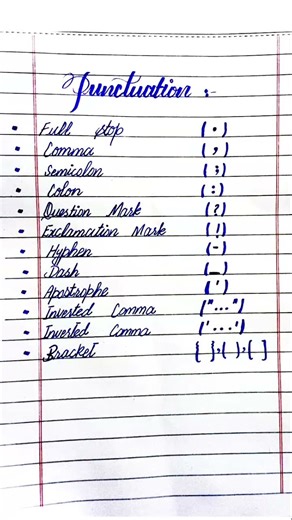 Punctuation :-
• Full stop (.)
• Comma (,)
• Semicolon (;)
• Colon (:)
• Question Mark (?)
• Exclamation Mark (!)
• Hyphen (-)
• Dash (_)
• Apostrophe (')
• Invested Comma ("...")
• Invested Comma ('...')
• Bracket { },( ),[ ]